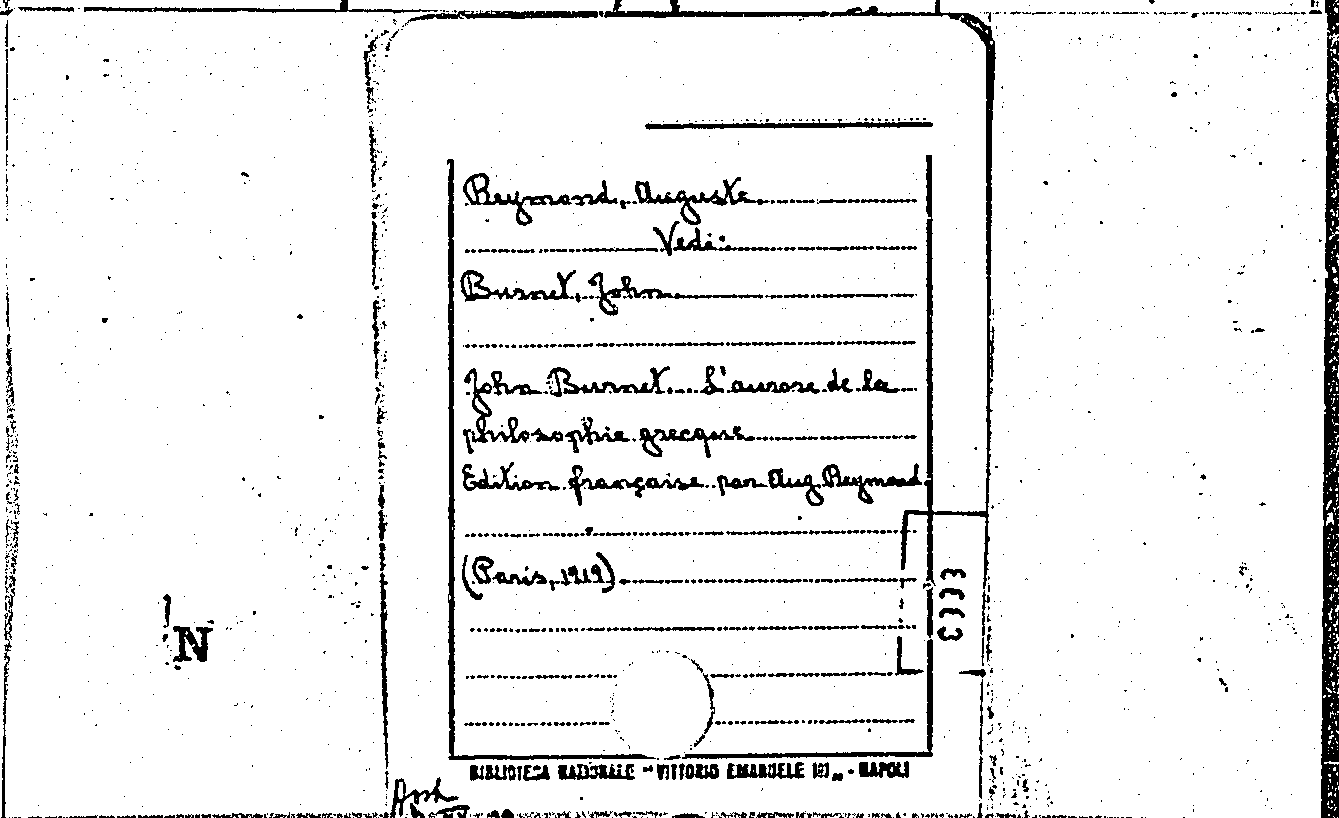 Reymond, Auguste.
Vedi:
Burnet, John.
John Burnet. L'aurore de la
philosophie grecque.
Edition française par Aug. Reymond.
(Paris, 1919).
N
BIBLIOTECA NAZIONALE "VITTORIO EMANUELE III" - NAPOLI